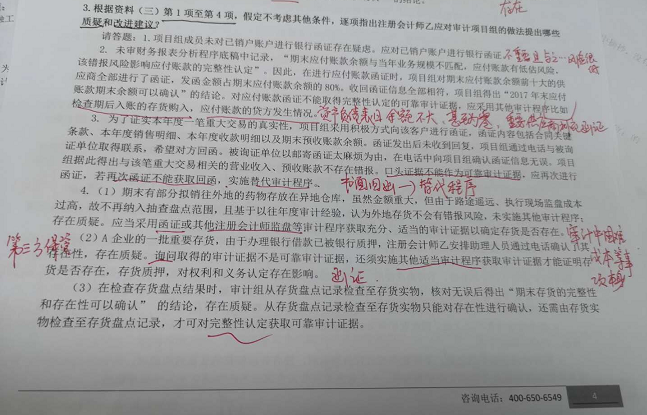 存在
3.根据资料（三）第1项至第4项，假定不考虑其他条件，逐项指出注册会计师乙应对审计项目组的做法提出哪些
质疑和改进建议？
请答题：1.项目组成员未对已销户账户进行银行函证存在疑虑。应对已销户账户进行银行函证
2.未审财务报表分析程序底稿中记录，“期末应付账款余额与当年业务规模不匹配，应付账款有低估风险，
该错报风险影响应付账款的完整性认定”。因此，在进行应付账款函证时，项目组对期末应付账款余额前十大的供
应商全部进行了函证，发函金额占期末应付账款余额的80%。收回函证信息全部相符，项目组得出“2017年末应付
账款期末余额可以确认”的结论。对应付账款函证不能取得完整性认定的可靠审计证据，应采用其他审计程序比如
检查期后入账的存货购入，应付账款的贷方发生情况。
3.为了证实本年度一笔重大交易的真实性，项目组采用积极方式向该客户进行函证，函证内容包括合同关键
条款、本年度销售明细、本年度收款明细以及期末预收账款余额。函证发出后未收到回复，项目组通过电话与被询
证单位取得联系，希望对方回函。被询证单位以邮寄函证太麻烦为由，在电话中向项目组确认函证信息无误。项目
组据此得出与该笔重大交易相关的营业收入、预收账款不存在错报。口头证据不能作为可靠审计证据，应再次进行
函证，若再次函证不能获取回函，实施替代审计程序。
4.（1）期末有部分拟销往外地的药物存放在异地仓库，虽然金额重大，但由于路途遥远、执行现场监盘成本
过高，故不再纳入抽查盘点范围，且基于以往年度审计经验，认为外地存货不会有错报风险，未实施其他审计程序；
存在质疑。应当采用函证或其他注册会计师监盘等审计程序获取充分、适当的审计证据以确定存货是否存在。
第三方保管
（2）A企业的一批重要存货，由于办理银行借款已被银行质押，注册会计师乙安排助理人员通过电话确认其
性，存在质疑。询问取得的审计证据不是可靠审计证据，还须实施其他适当审计程序获取审计证据才能证明存
货是否存在，存货质押，对权利和义务认定存在影响。
函证
（3）在检查存货盘点结果时，审计组从存货盘点记录检查至存货实物，核对无误后得出“期末存货的完整性
和存在性可以确认”的结论，存在质疑。从存货盘点记录检查至存货实物只能对存在性进行确认，还需由存货实
物检查至存货盘点记录，才可对完整性认定获取可靠审计证据。
咨询电话：400-650-6549
4